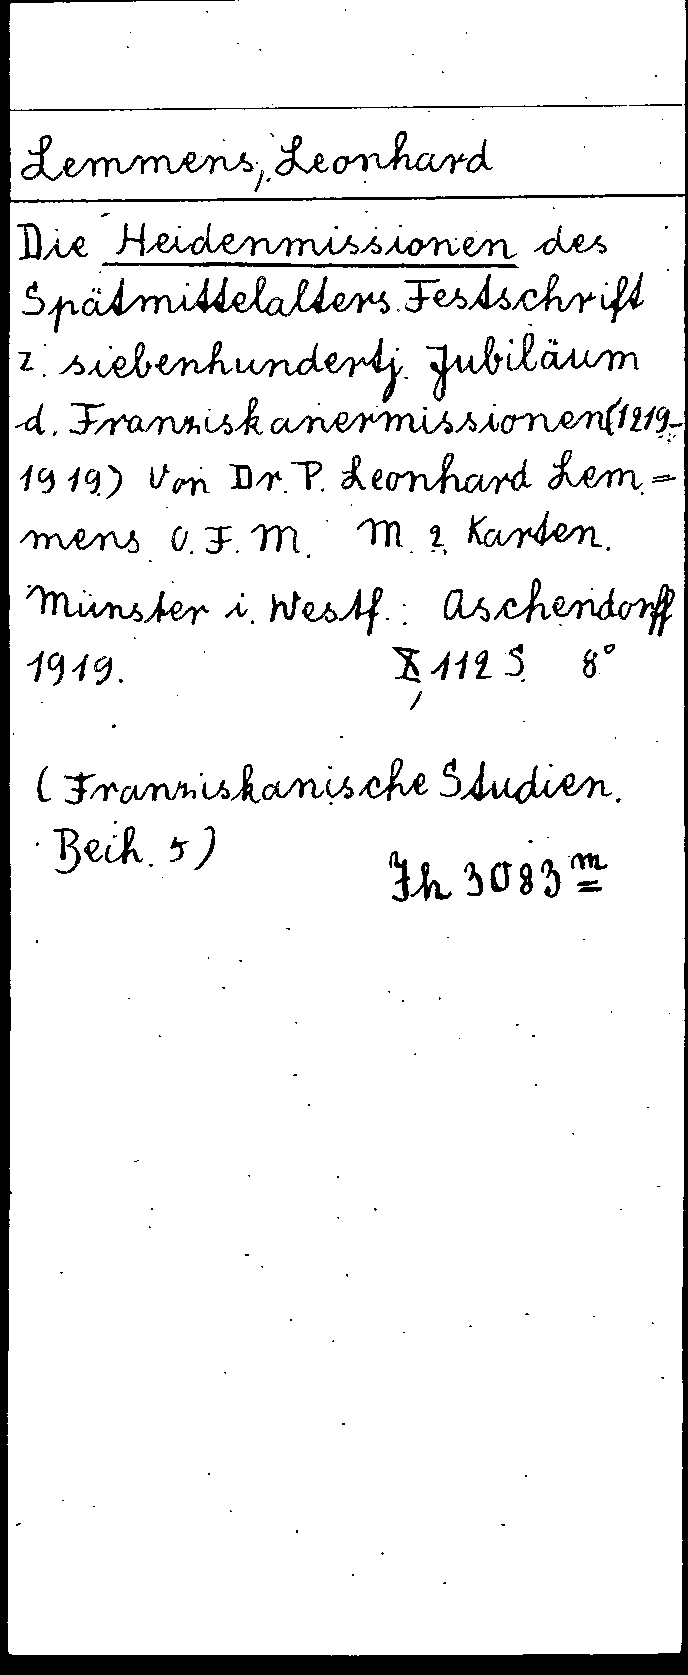 Lemmens, Leonhard
Die Heidenmissionen des
Spätmittelalters. Festschrift
z. siebenhundertj. Jubiläum
d. Franziskanermissionen (1219-
1919) Von Dr. P. Leonhard Lem=
mens O.F.M. M. 2 Karten.
Münster i. Westf.: Aschendorff
1919. X, 112 S. 8°
(Franziskanische Studien.
Beih. 5)
Jh 3083 m